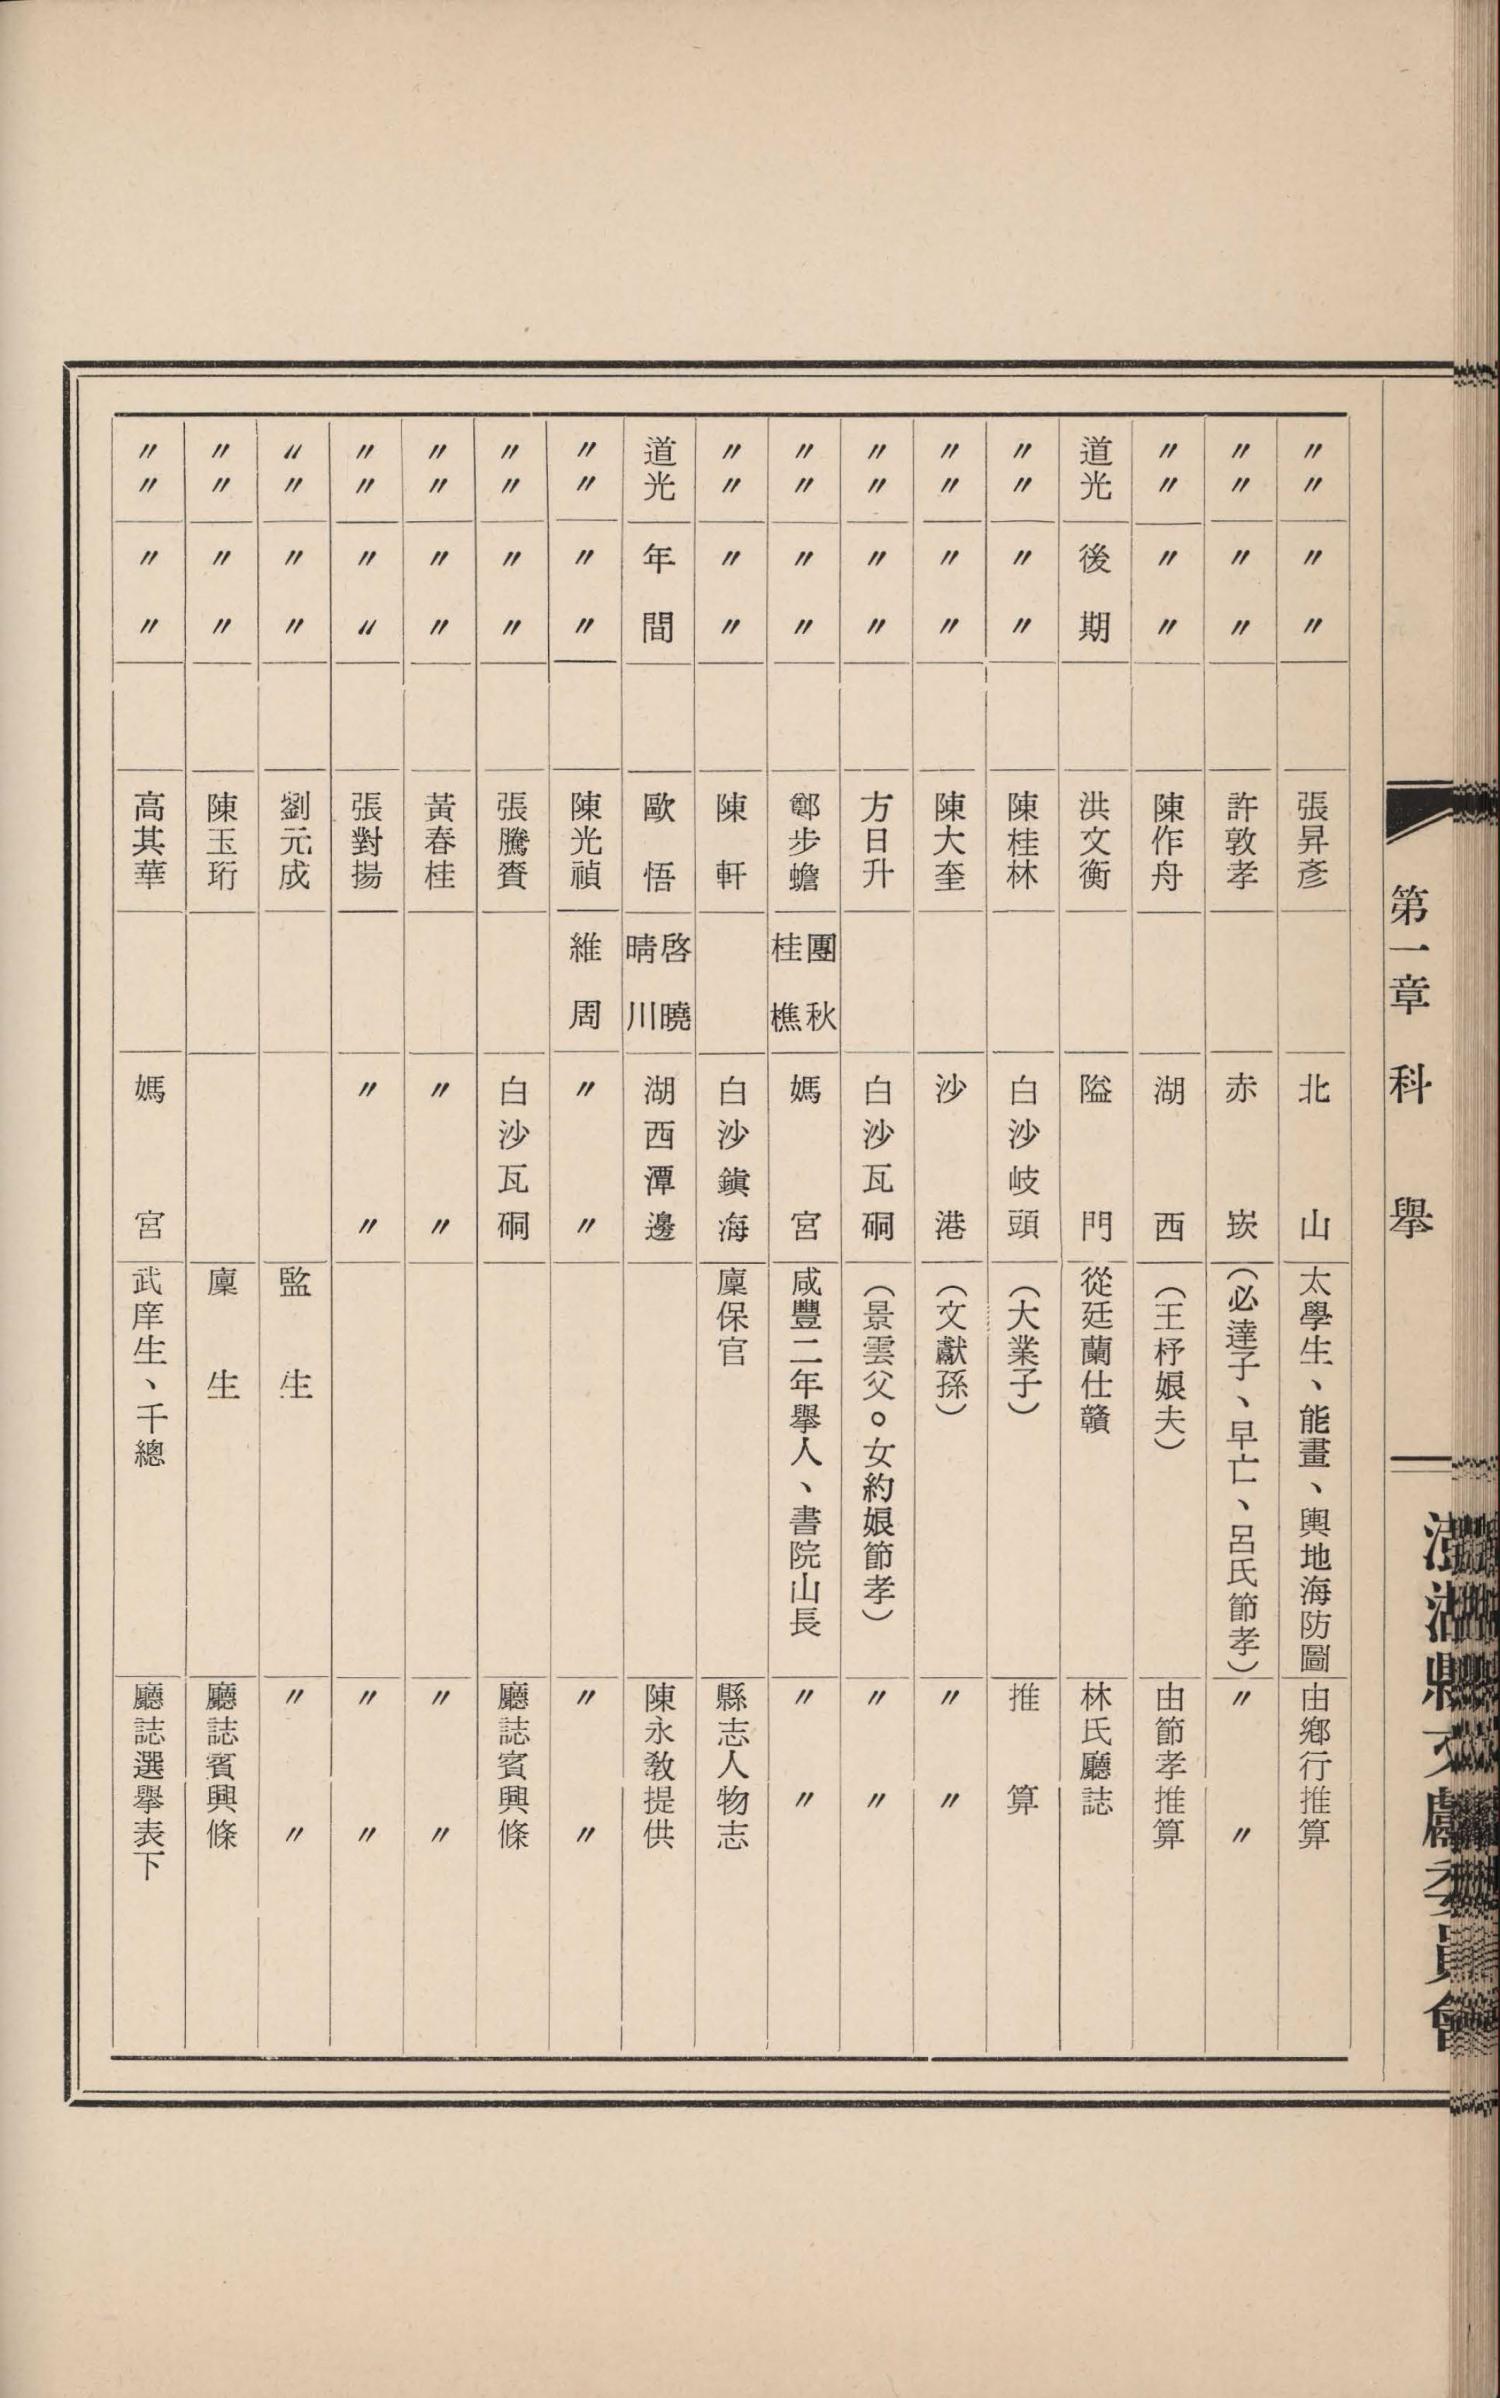 第一章 科 舉
澎湖縣文獻委員會
〃〃 〃〃 張昇彥 北山 太學生、能畫、輿地海防圖 由鄉行推算
〃〃 〃〃 許敦孝 赤崁 （必達子、早亡、呂氏節孝） 〃〃
〃〃 〃〃 陳作舟 湖西 （王杼娘夫） 由節孝推算
道光 後期 洪文衡 隘門 從廷蘭仕贛 林氏廳誌
〃〃 〃〃 陳桂林 白沙岐頭 （大業子） 推算
〃〃 〃〃 陳大奎 沙港 （文獻孫） 〃〃
〃〃 〃〃 方日升 白沙瓦硐 （景雲父。女約娘節孝） 〃〃
〃〃 〃〃 鄭步蟾 團秋 桂樵 媽宮 咸豐二年舉人、書院山長 〃〃
〃〃 〃〃 陳軒 白沙鎮海 廩保官 縣志人物志
道光 年間 歐悟 啓曉 晴川 湖西潭邊 陳永敎提供
〃〃 〃〃 陳光禎 維周 〃〃 〃〃
〃〃 〃〃 張騰賚 白沙瓦硐 廳誌賓興條
〃〃 〃〃 黃春桂 〃〃 〃〃
〃〃 〃〃 張對揚 〃〃 〃〃
〃〃 〃〃 劉元成 監生 〃〃
〃〃 〃〃 陳玉珩 廩生 廳誌賓興條
〃〃 〃〃 高其華 媽宮 武庠生、千總 廳誌選舉表下